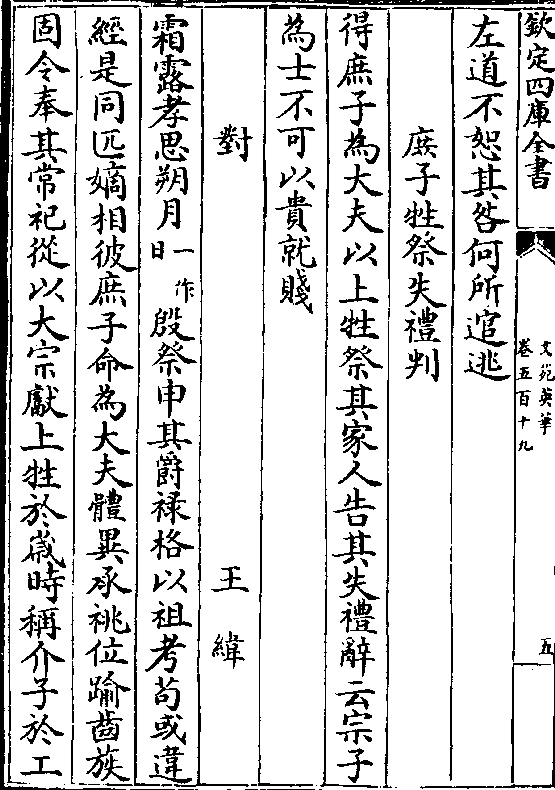 欽定四庫全書
文苑英華
卷五百十九
五
左道不恕其咎何所逭逃
庶子牲祭失禮判
得庶子為大夫以上牲祭其家人告其失禮辭云宗子
為士不可以貴就賤
對
王緯
霜露孝思朔月一作日殷祭申其爵祿格以祖考苟或違
經是同匹嫡相彼庶子命為大夫體異承祧位踰齒族
固令奉其常祀從以大宗獻上牲於歲時稱介子於工